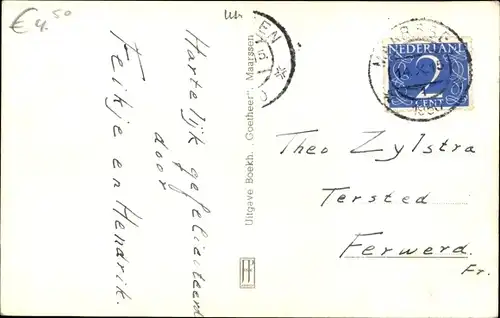 € 4.50
Hartelijk gefeliciteerd
door
Feikje en Hendrik.
Uitgave Boekh. „Goetheer”, Maarssen
NEDERLAND
2
CENT
Theo Zylstra
Tersted
Ferwerd.
Fr.